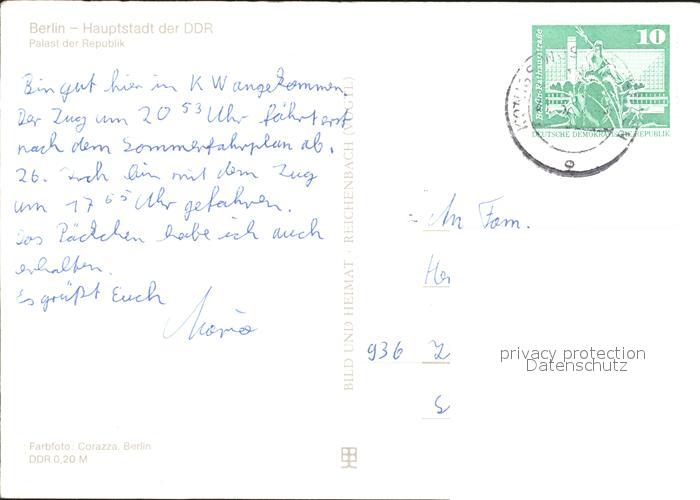 Berlin – Hauptstadt der DDR
Palast der Republik
Bin gut hier in KW angekommen.
Der Zug um 20 53 Uhr fährt erst
nach dem Sommerfahrplan ab.
26. Ich bin mit dem Zug
um 17 05 Uhr gefahren.
Das Päckchen habe ich auch
erhalten.
Es grüßt Euch
Maria
Farbfoto: Corazza, Berlin
DDR 0,20 M
BILD UND HEIMAT · REICHENBACH (VOGTL)
Berlin-Rathausstraße
10
DEUTSCHE DEMOKRATISCHE REPUBLIK
An Fam.
936
privacy protection
Datenschutz